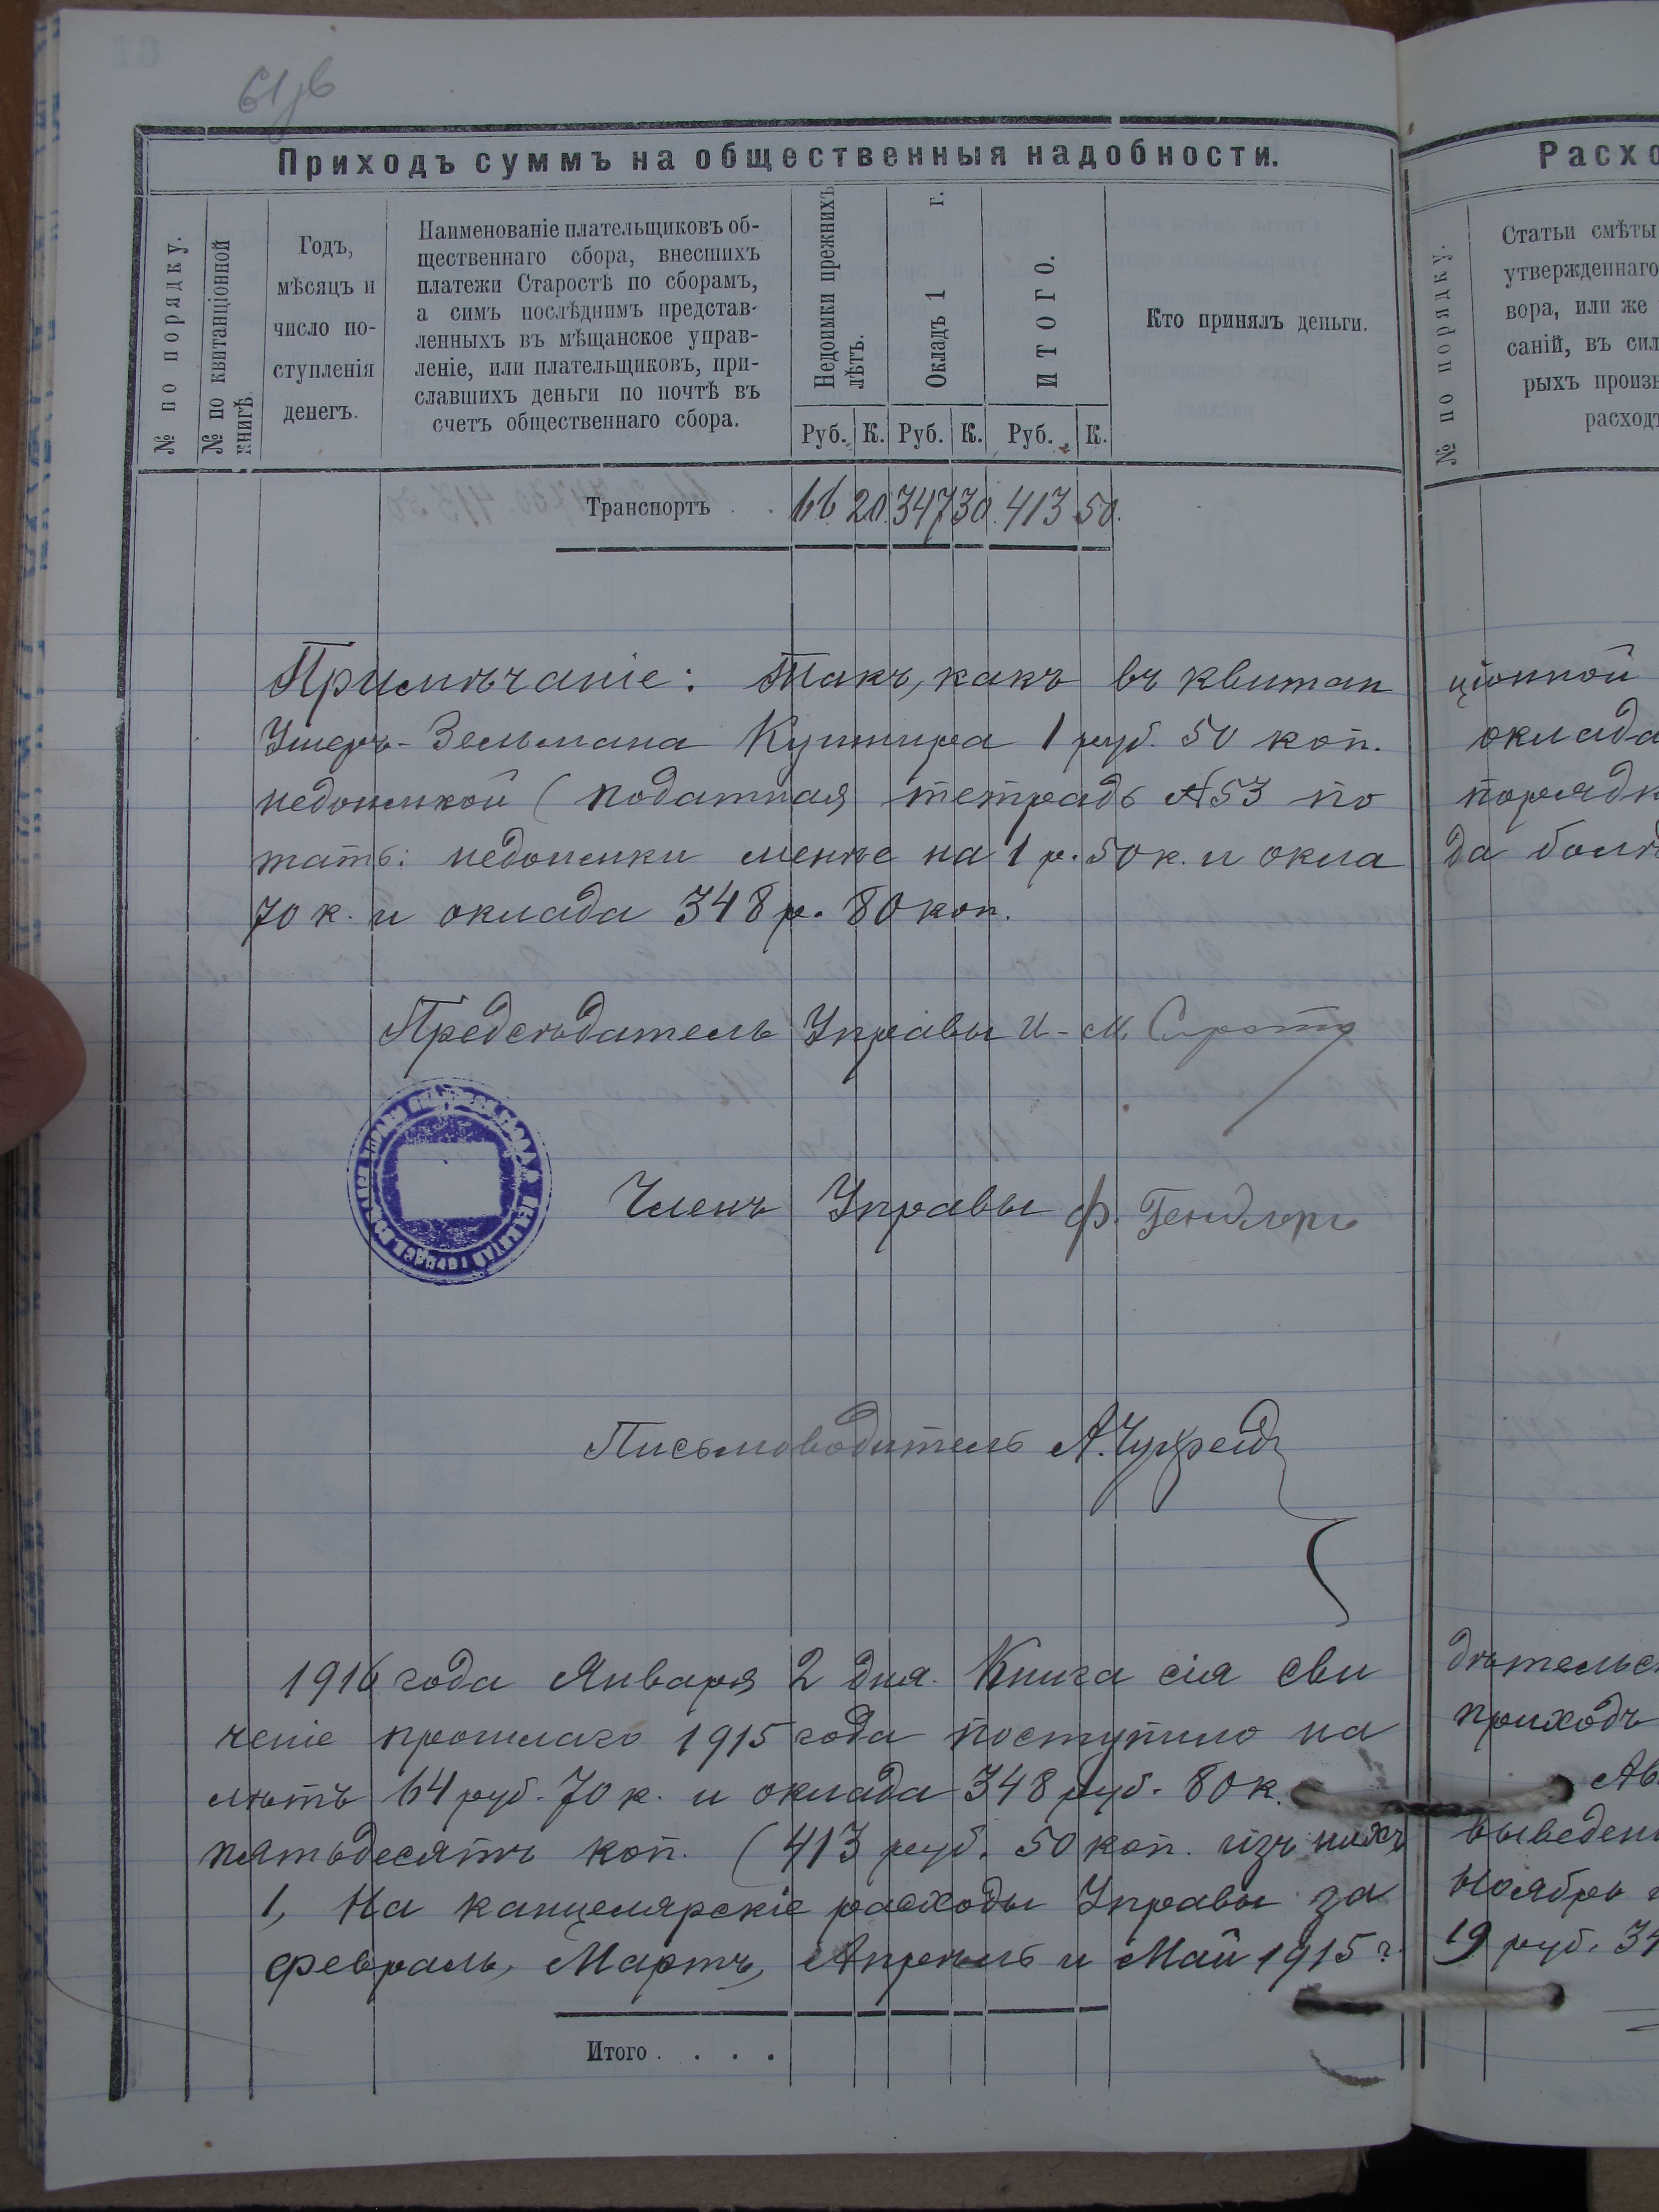 Приходъ суммъ на общественныя надобности.
№ по порядку.
№ по квитанціонной
книгѣ.
Годъ,
мѣсяцъ и
число по-
ступленія
денегъ.
Наименованіе плательщиковъ об-
щественнаго сбора, внесшихъ
платежи Старостѣ по сборамъ,
а симъ послѣднимъ представ-
ленныхъ въ мѣщанское управ-
леніе, или плательщиковъ, при-
славшихъ деньги по почтѣ въ
счетъ общественнаго сбора.
Недоимки прежнихъ
лѣтъ.
Окладъ 1 г.
ИТОГО.
Кто принялъ деньги.
Руб. К. Руб. К. Руб. К.
Транспортъ . . 66 20. 347 30. 413 50.
Примѣчаніе: Такъ, какъ въ квитан
Ушеръ-Зельмана Кушнира 1 руб. 50 коп.
недоимкой (податная тетрадь №53 по
тать: недоимки менѣе на 1 р. 50 к. и окла
70 к. и оклада 348 р. 80 коп.
Предсѣдатель Управы И-М.
Членъ Управы Ф. Гендлеръ
Письмоводитель А.
1916 года Января 2 дня. Книга сія сви
ченіе прошлаго 1915 года поступило на
лѣтъ 64 руб. 70 к. и оклада 348 руб. 80 к.
пятьдесятъ коп. (413 руб. 50 коп. изъ нихъ
1, На канцелярскіе расходы Управы за
Февраль, Мартъ, Апрѣль и Май 1915 г.
Итого . . . .
Расхо
№ по порядку.
Статьи смѣты
утвержденнаго
вора, или же
саній, въ сил
рыхъ произв
расходъ
ціонной
оклада
порядк
да болѣ
дѣтельс
приходъ
Ав
выведен
Ноябрь
19 руб. 34